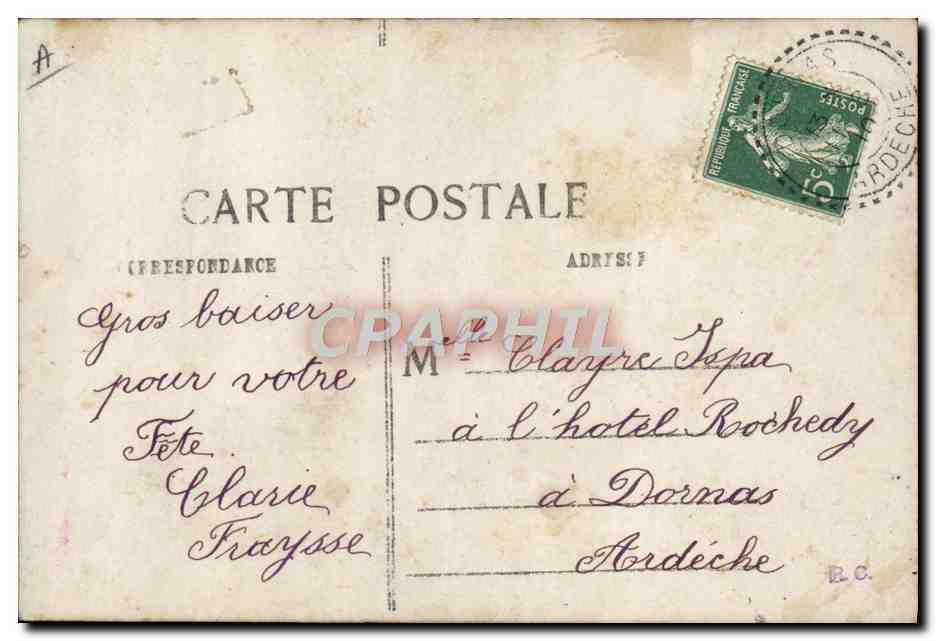 A
RÉPUBLIQUE FRANÇAISE
POSTES
5c
ARDECHE
CARTE POSTALE
CORRESPONDANCE
ADRESSE
CPAPHIL
Gros baiser
pour votre
Fête.
Clarie
Fraysse
Melle Clayre Ispa
à l'hotel Rochedy
à Dornas
Ardéche
B.C.